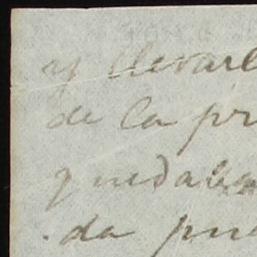 y llevarl
de la pr
quedaba
da pu